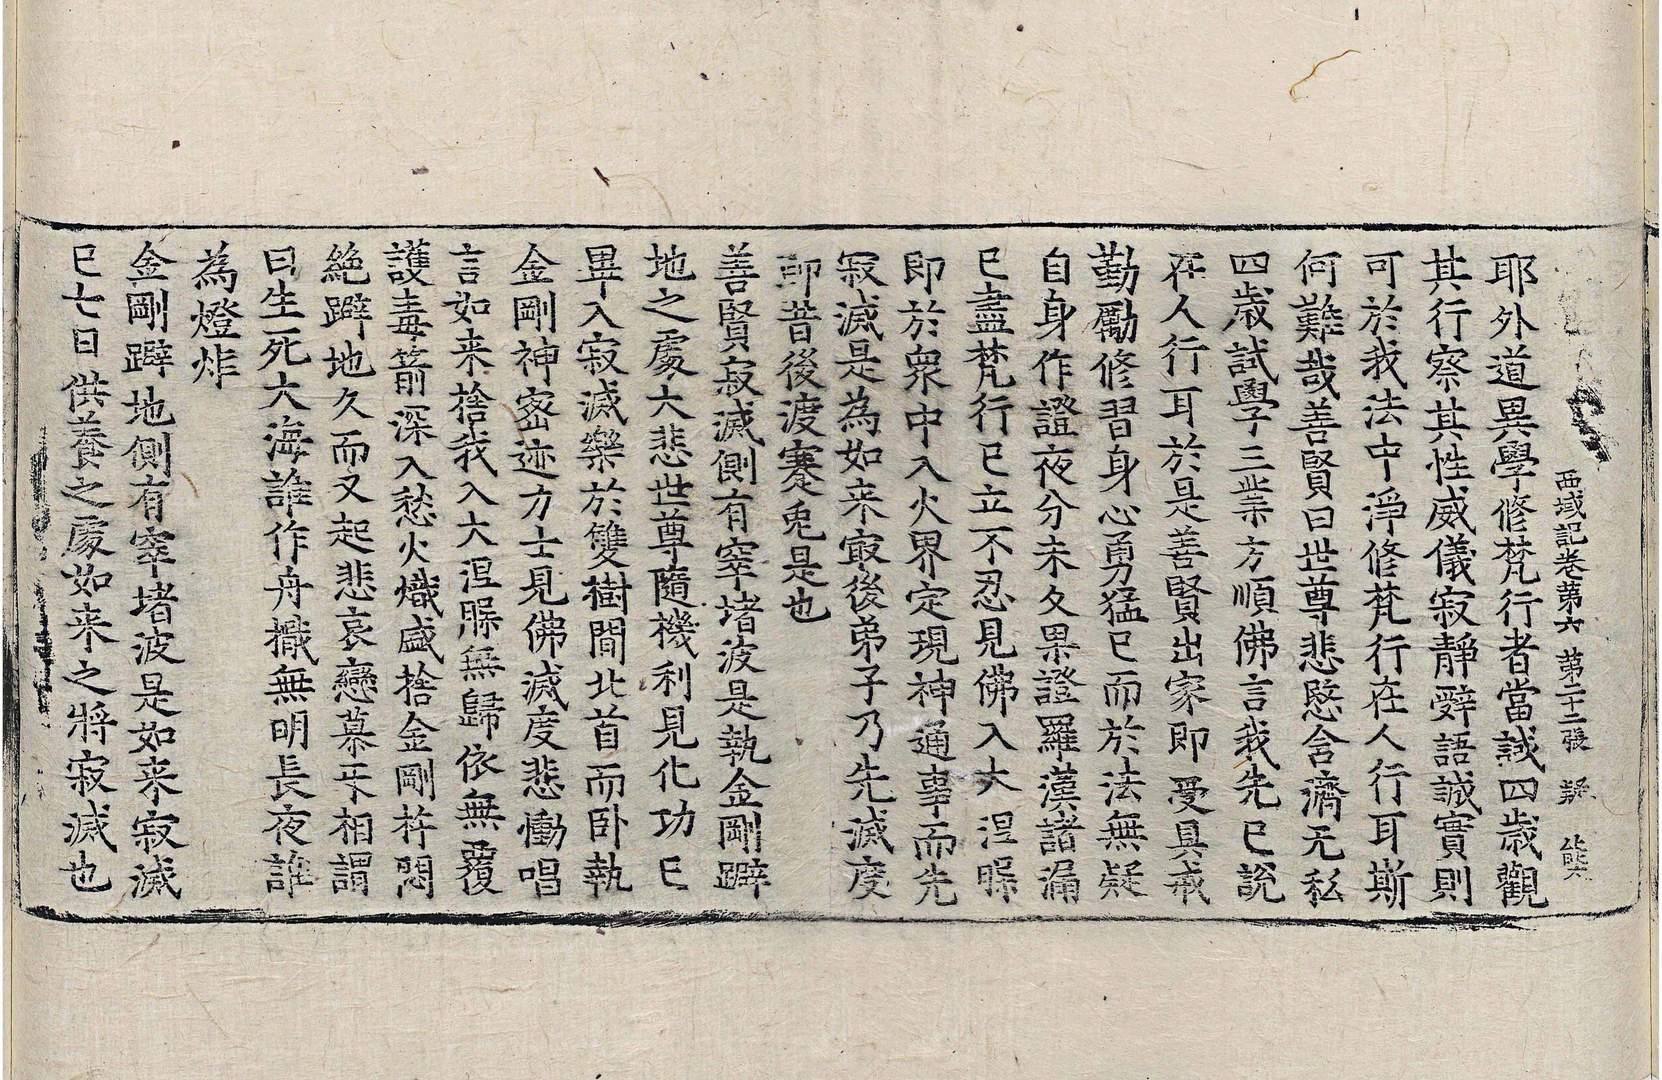 西域記卷第六 第二十二張
耶外道異學修梵行者當試四歲觀
其行察其性威儀寂靜辭語誠實則
可於我法中淨修梵行在人行耳斯
何難哉善賢曰世尊悲愍含濟无私
四歲試學三業方順佛言我先已說
在人行耳於是善賢出家即受具戒
勤勵修習身心勇猛已而於法無疑
自身作證夜分未久果證羅漢諸漏
已盡梵行已立不忍見佛入大涅槃
即於衆中入火界定現神通事而先
寂滅是為如来㝡後弟子乃先滅度
即昔後渡蹇兎是也
善賢寂滅側有窣堵波是執金剛躃
地之處大悲世尊隨機利見化功已
畢入寂滅樂於雙樹間北首而卧執
金剛神密迹力士見佛滅度悲慟唱
言如来捨我入大涅槃無歸依無覆
護毒箭深入愁火熾盛捨金剛杵悶
絶躃地久而又起悲哀戀慕互相謂
曰生死大海誰作舟檝無明長夜誰
為燈炷
金剛躃地側有窣堵波是如来寂滅
已七日供養之處如来之將寂滅也